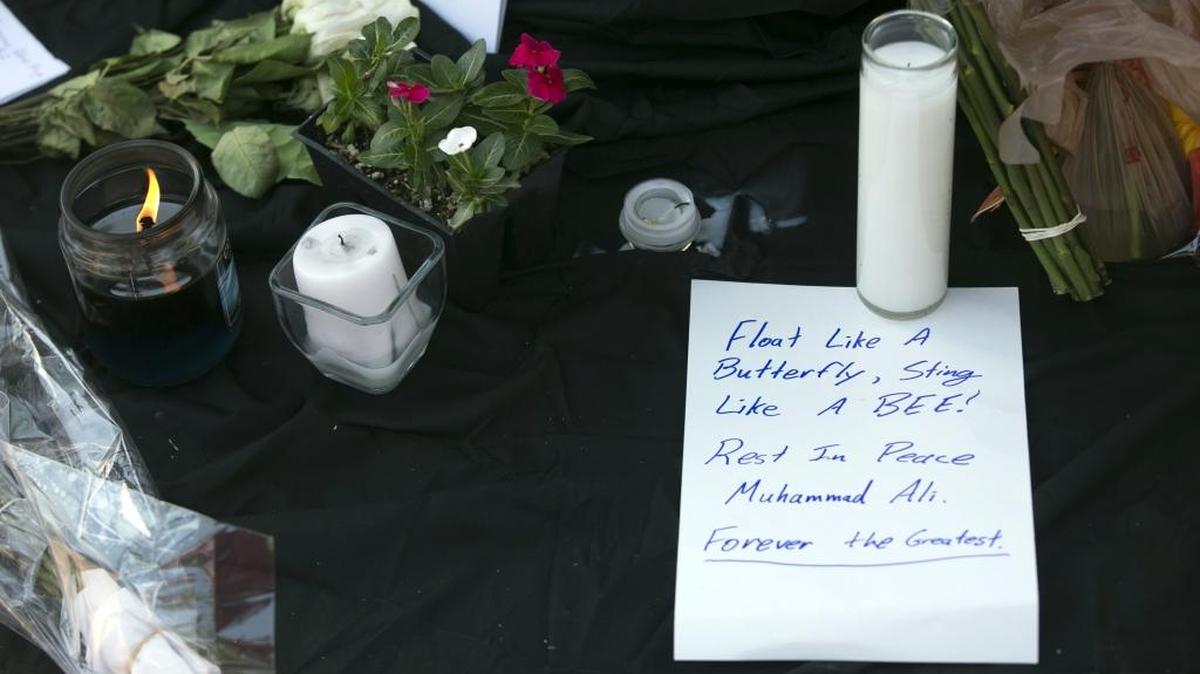 Float Like A
Butterfly, Sting
Like A BEE!
Rest In Peace
Muhammad Ali.
Forever the Greatest.